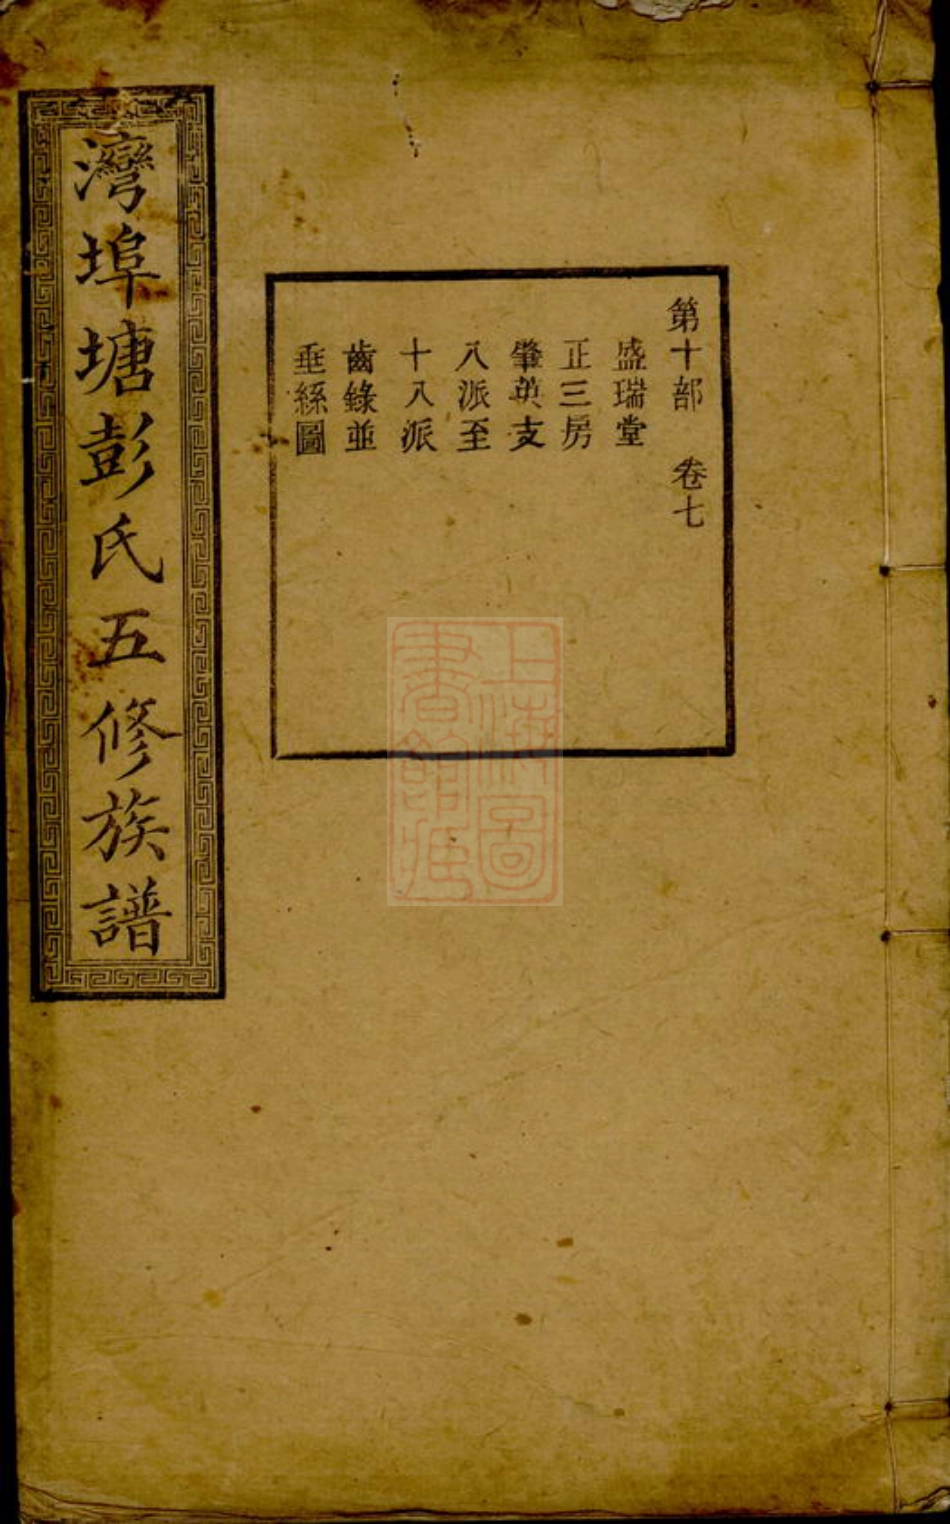 灣埠塘彭氏五修族譜
第十部 卷七
盛瑞堂
正三房
肇英支
八派至
十八派
齒錄並
垂絲圖
上海圖
書館藏